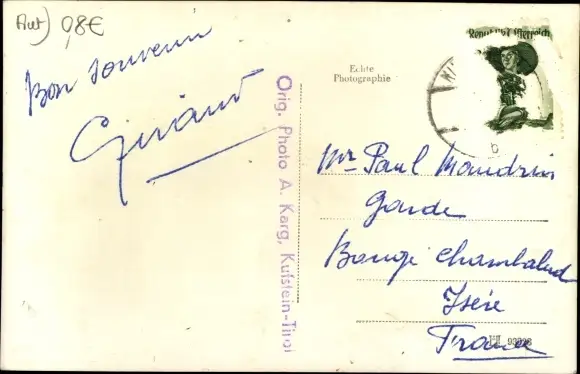 Aut) 0,8€
Bon souvenir
Giraud
Orig. Photo A. Karg, Kufstein-Tirol
Echte
Photographie
Republik Österreich
b
Mr Paul Mandrin
Garde
Bouge Chambalud
Isère
France